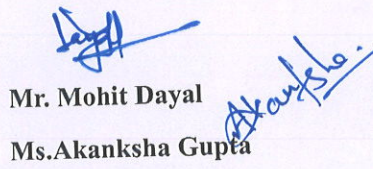 Mr. Mohit Dayal
Akanksha.
Ms.Akanksha Gupta